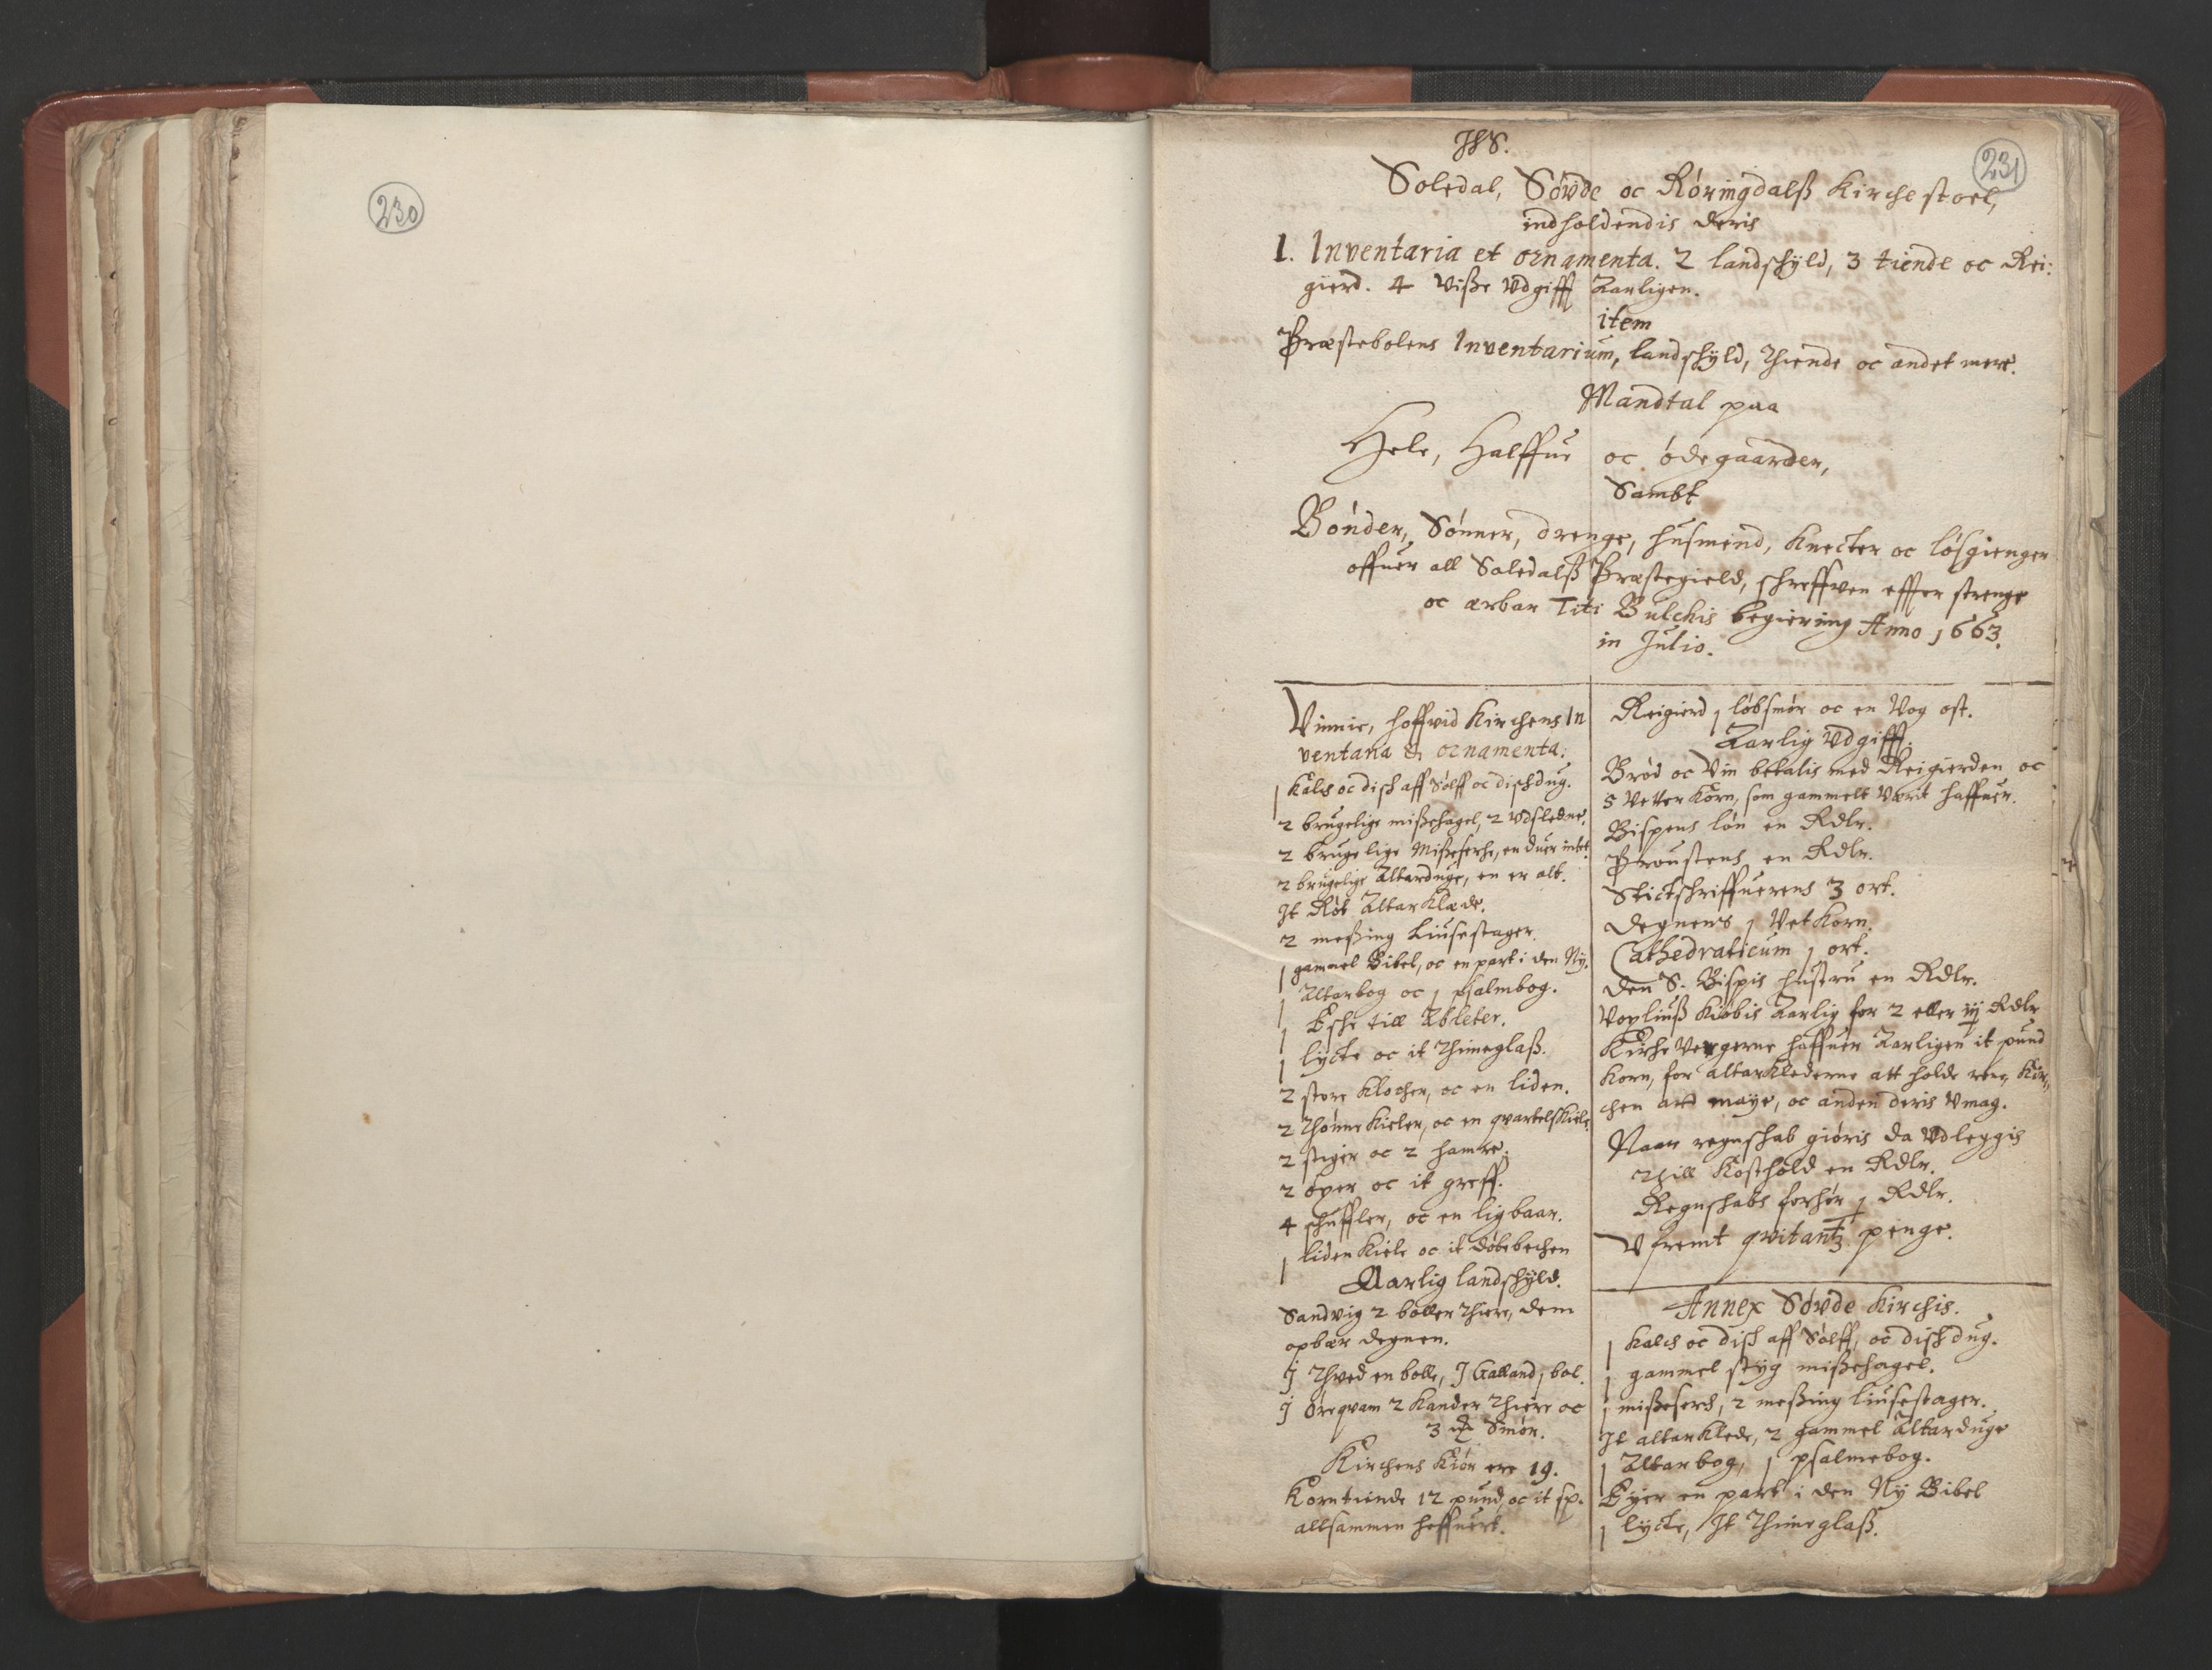 230
231
JHS.
Soledal, Søvde oc Røringdalß Kirchestoel,
indholdendis deris
1. Inventaria et ornamenta. 2 landschyld, 3 tiende oc Rei:
gierd. 4 Visse Vdgifft Aarligen.
item
Præstebolens Inventarium, landschyld, Thiende oc andet mere.
Mandtal paa
Hele, Halffue oc ødegaarder,
Sambt
Bønder, Sønner, drenge, husmend, Knecter oc løsgienger
offuer all Soledalß Præstegield, schreffven effter strenge
oc ærbar Titi Bulchis begiering Anno 1663.
in Julio.
Vinnie, hoffvid Kirchens In
ventaria & ornamenta:
1 Kalch oc disch aff Sølff oc dischdug.
2 brugelige missehagel, 2 Vdsledne.
2 brugelige Misseserche, en duer intet.
2 brugelige Altarduge, en er alt.
It Røt Altar Klæde.
2 messing Liusestager.
1 gammel Bibel, oc en part i den Ny.
1 Altarbog oc 1 psalmbog.
1 Esche till Ableter.
1 lycte oc it Thimeglaß.
2 store Klocher, oc en liden.
2 Thønne Kieler, oc en qvartelsKiele.
2 stiger oc 2 hamre.
2 øxer oc it greff.
4 schuffler, oc en ligbaar.
1 liden Kiele oc it døbebechen
Aarlig landschyld.
Sandvig 2 boller Thiere, dem
opbær degnen.
J Thved en bolle, J Galland 1 bol.
J Øreqvam 2 Kander Thiere oc
3 ℔ Smør.
Kirchens Kiør ere 19.
Korntiende 12 pund, oc it sp.
altsammen haffuert.
Reigierd 1 løbsmør oc en Vog ost.
Aarlig Vdgifft.
Brød oc Vin betalis med Reigierden oc
5 Vetter Korn, som gammelt Værit haffuer.
Bispens løn en Rdlr.
Proustens en Rdlr.
Stictschriffuerens 3 ort.
Degnens 1 Vet Korn.
Cathedraticum 1 ort.
Den S. Bispis hustru en Rdlr.
Voxliuß Kiøbis Aarlig for 2 eller iij Rdlr
Kirche Vergerne haffuer Aarligen it pund
Korn, for altarklederne att holde rene, Kir,,
chen att maye, oc anden deris Vmag.
Naar regnschab giøris da Vdleggis
Thill Kosthold en Rdlr.
Regnschabs forhør 1 Rdlr.
V fremt qvitantz penge.
Annex Søvde Kirchis.
1 Kalch oc disch aff Sølff, oc dischdug.
1 gammel styg missehagel.
1 misseserch, 2 messing liusestager.
It altarklede, 2 gammel Altarduge
1 Altarbog, 1 psalmebog.
Eyer en part i den Ny Bibel
1 lycte, It Thimeglaß.